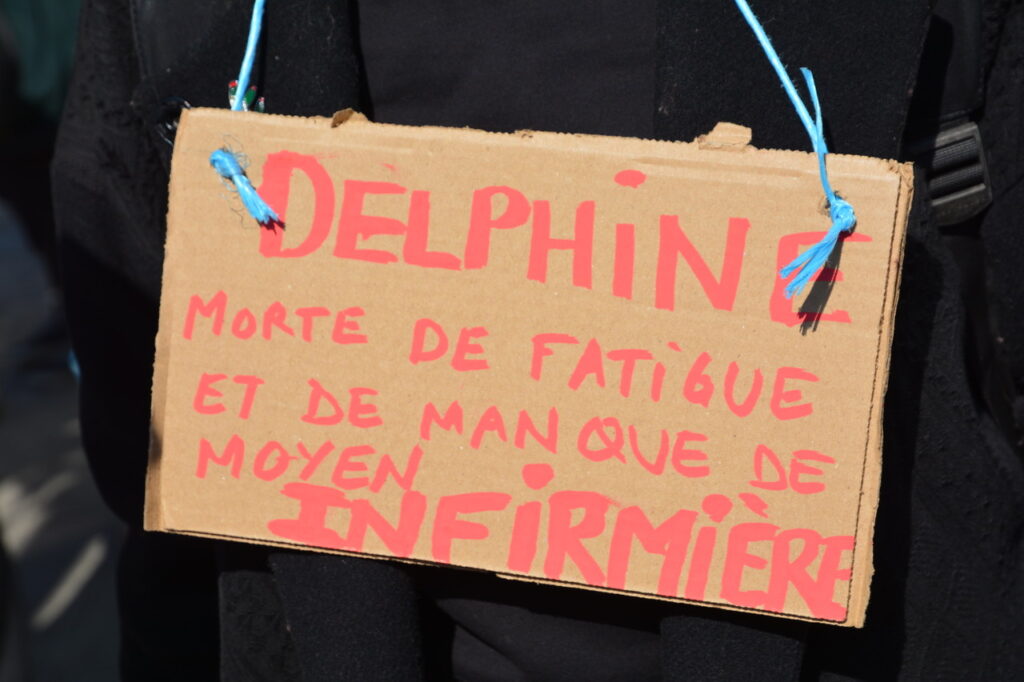 DELPHiNE
MORTE DE FATiGUE
ET DE MANQUE DE
MOYEN
INFiRMiÈRE